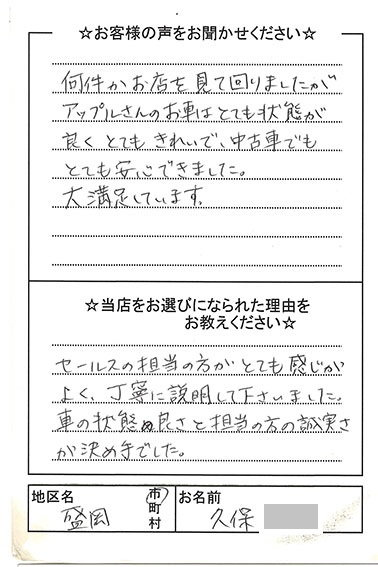 ☆お客様の声をお聞かせください☆
何件かお店を見て回りましたが
アップルさんのお車はとても状態が
良くとてもきれいで、中古車でも
とても安心できました。
大満足しています。
☆当店をお選びになられた理由を
お教えください☆
セールスの担当の方がとても感じが
よく、丁寧に説明して下さいました。
車の状態の良さと担当の方の誠実さ
が決め手でした。
地区名
盛岡
市
町
村
お名前
久保